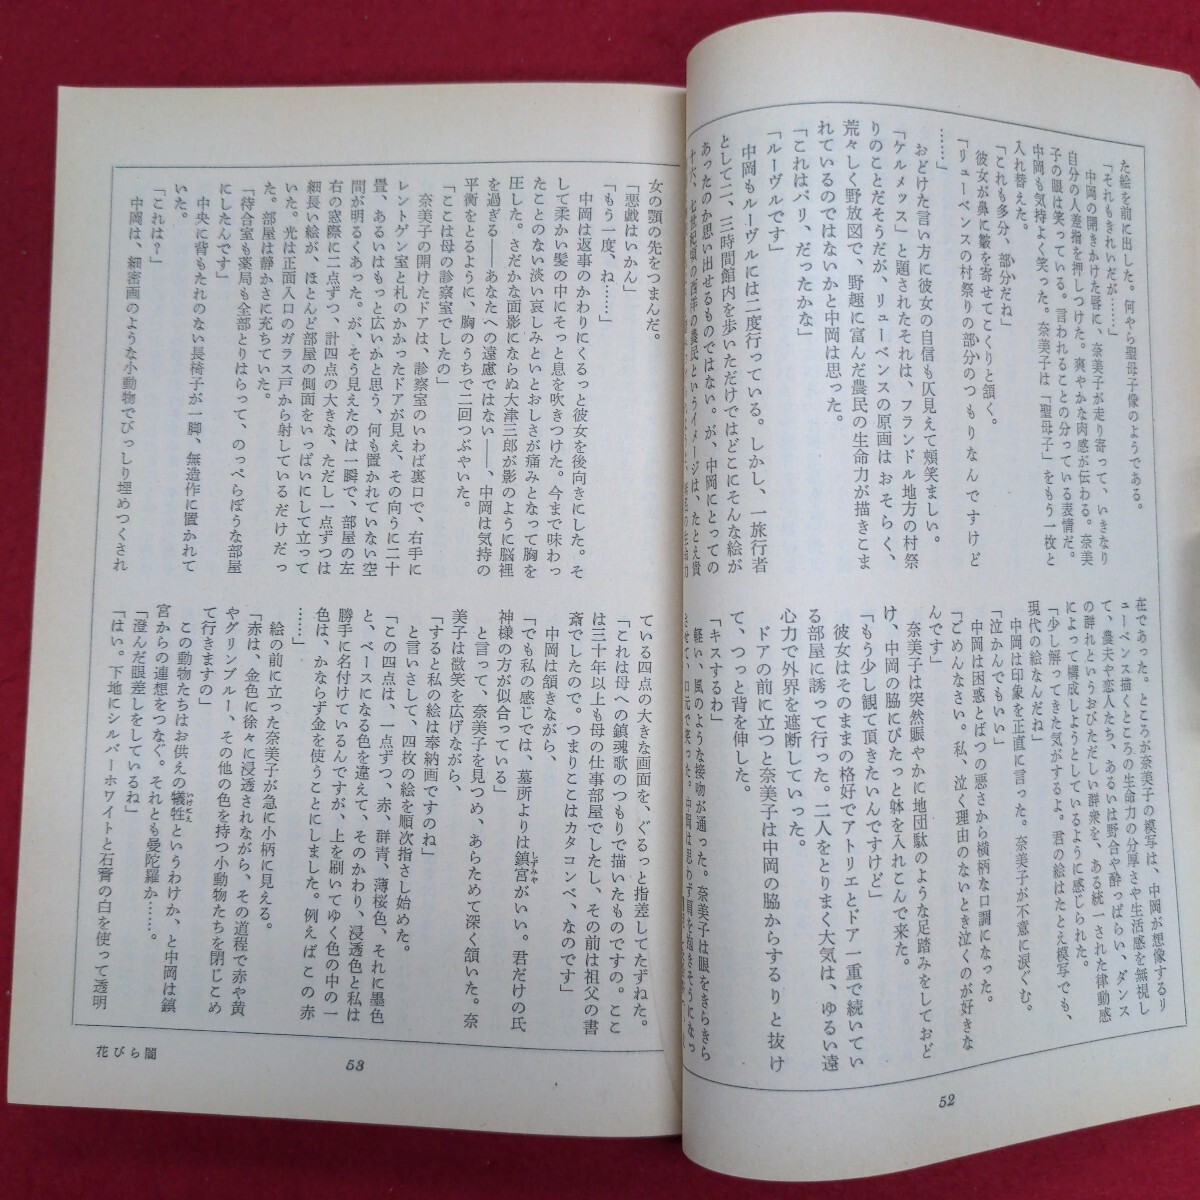 た絵を前に出した。何やら聖母子像のようである。
「それもきれいだが……」
中岡の開きかけた唇に、奈美子が走り寄って、いきなり
自分の人差指を押しつけた。爽やかな肉感が伝わる。奈美
子の眼は笑っている。言われることの分っている表情だ。
中岡も気持よく笑った。奈美子は「聖母子」をもう一枚と
入れ替えた。
「これも多分、部分だね」
彼女が鼻に皺を寄せてこくりと頷く。
「リューベンスの村祭りの部分のつもりなんですけど
……」
おどけた言い方に彼女の自信も仄見えて頬笑ましい。
「ケルメッス」と題されたそれは、フランドル地方の村祭
りのことだそうだが、リューベンスの原画はおそらく、
荒々しく野放図で、野趣に富んだ農民の生命力が描きこま
れているのではないかと中岡は思った。
「これはパリ、だったかな」
「ルーヴルです」
中岡もルーヴルには二度行っている。しかし、一旅行者
として二、三時間館内を歩いただけではどこにそんな絵が
あったのか思い出せるものではない。が、中岡にとっての
十六、七世紀頃の西洋の農民というイメージは、たとえ貴
在であった。ところが奈美子の模写は、中岡が想像するリ
ューベンス描くところの生命力の分厚さや生活感を無視し
て、農夫や恋人たち、あるいは野合や酔っぱらい、ダンス
の群れというおびただしい群衆を、ある統一された律動感
によって構成しようとしているように感じられた。
「少し解ってきた気がするよ。君の絵はたとえ模写でも、
現代の絵なんだね」
中岡は印象を正直に言った。奈美子が不意に涙ぐむ。
「泣かんでもいい」
中岡は困惑とばつの悪さから横柄な口調になった。
「ごめんなさい。私、泣く理由のないとき泣くのが好きな
んです」
奈美子は突然賑やかに地団駄のような足踏みをしておど
け、中岡の脇にぴたっと躰を入れこんで来た。
「もう少し観て頂きたいんですけど」
彼女はそのままの格好でアトリエとドア一重で続いてい
る部屋に誘って行った。二人をとりまく大気は、ゆるい遠
心力で外界を遮断していった。
ドアの前に立つと奈美子は中岡の脇からするりと抜け
て、つっと背を伸した。
「キスするわ」
軽い、風のような接吻が通った。奈美子は眼をきらきら
52
女の顎の先をつまんだ。
「悪戯はいかん」
「もう一度、ね……」
中岡は返事のかわりにくるっと彼女を後向きにした。そ
して柔かい髪の中にそっと息を吹きつけた。今まで味わっ
たことのない淡い哀しみといとおしさが痛みとなって胸を
圧した。さだかな面影にならぬ大津三郎が影のように脳裡
を過ぎる――あなたへの遠慮ではない――、中岡は気持の
平衡をとるように、胸のうちで二回つぶやいた。
「ここは母の診察室でしたの」
奈美子の開けたドアは、診察室のいわば裏口で、右手に
レントゲン室と札のかかったドアが見え、その向うに二十
畳、あるいはもっと広いかと思う、何も置かれていない空
間が明るくあった。が、そう見えたのは一瞬で、部屋の左
右の窓際に二点ずつ、計四点の大きな、ただし一点ずつは
細長い絵が、ほとんど部屋の側面をいっぱいにして立って
いた。光は正面入口のガラス戸から射しているだけだっ
た。部屋は静かさに充ちていた。
「待合室も薬局も全部とりはらって、のっぺらぼうな部屋
にしたんです」
中央に背もたれのない長椅子が一脚、無造作に置かれて
いた。
「これは？」
中岡は、細密画のような小動物でびっしり埋めつくされ
ている四点の大きな画面を、ぐるっと指差してたずねた。
「これは母への鎮魂歌のつもりで描いたものですの。ここ
は三十年以上も母の仕事部屋でしたし、その前は祖父の書
斎でしたので。つまりここはカタコンベ、なのです」
中岡は頷きながら、
「でも私の感じでは、墓所よりは鎮宮がいい。君だけの氏
神様の方が似合っている」
と言って、奈美子を見つめ、あらためて深く頷いた。奈
美子は微笑を広げながら、
「すると私の絵は奉納画ですのね」
と言いさして、四枚の絵を順次指さし始めた。
「この四点は、一点ずつ、赤、群青、薄桜色、それに墨色
と、ベースになる色を違えて、そのかわり、浸透色と私は
勝手に名付けているんですが、上を刷いてゆく色の中の一
色は、かならず金を使うことにしました。例えばこの赤
……」
絵の前に立った奈美子が急に小柄に見える。
「赤は、金色に徐々に浸透されながら、その道程で赤や黄
やグリンブルー、その他の色を持つ小動物たちを閉じこめ
て行きますの」
この動物たちはお供えの犠牲というわけか、と中岡は鎮
宮からの連想をつなぐ。それとも曼陀羅か……。
「澄んだ眼差しをしているね」
「はい。下地にシルバーホワイトと石膏の白を使って透明
53
花びら闇